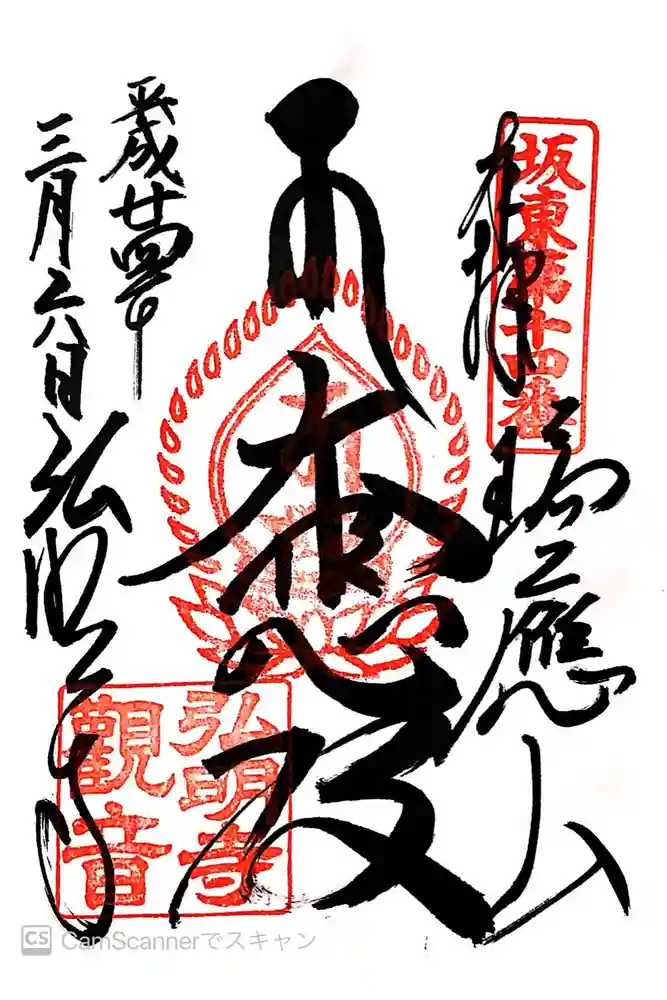 坂東第十四番
奉拝
瑞應山
大悲殿
平成廿四年
三月日
弘明寺
弘明寺
觀音
CS CamScannerでスキャン